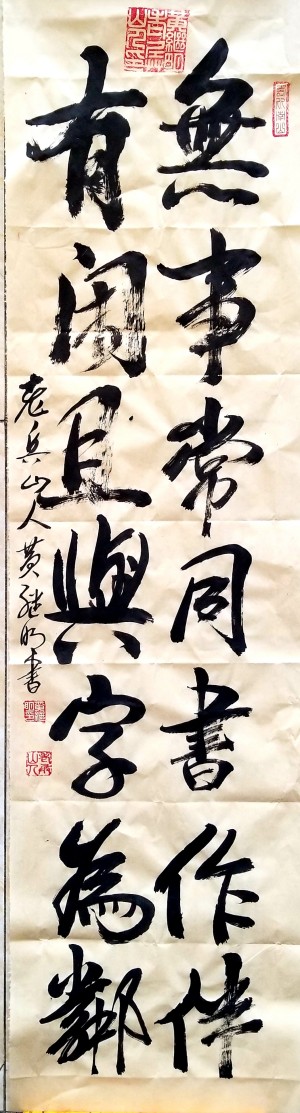 無事常同書作伴
有閑且與字為鄰
老兵山人黄継明書